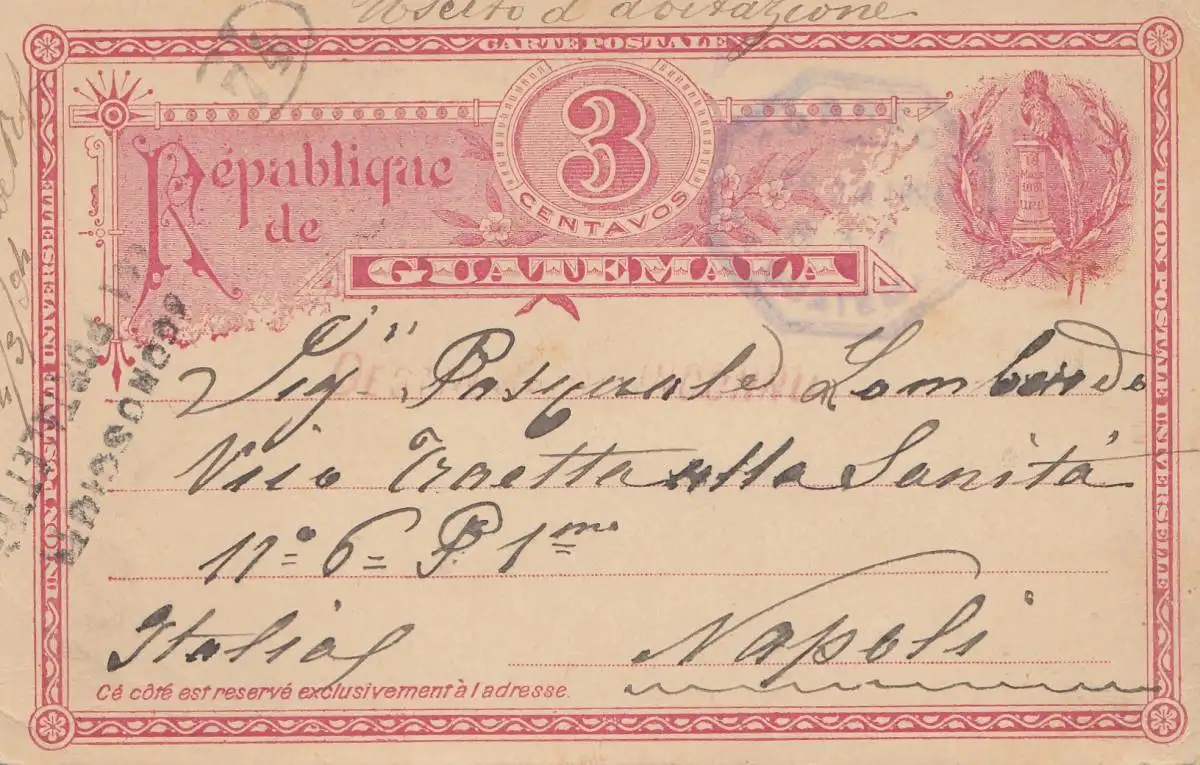 Uscito d'abitazione
CARTE POSTALE
République
de
3
CENTAVOS
GUATEMALA
UNION POSTALE UNIVERSELLE
UNION POSTALE UNIVERSELLE
Sig.r Pasquale Lombardo
Vico Traetta alla Sanità
N.º 6= P. 1mo
Italia
Napoli
Cé côté est reservé exclusivement à l adresse.
SCONOSCIUTO